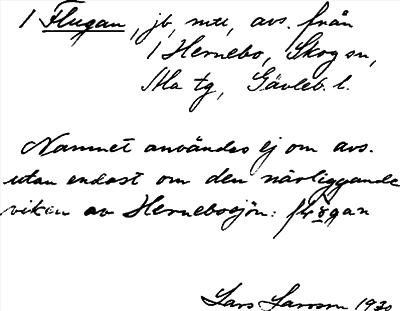 1 Flugan, jb, mtl, avs. från
1 Hernebo, Skog sn,
Ala tg, Gävleb. l.
Namnet användes ej om avs.
utan endast om den närliggande
viken av Hernebosjön: flögan
Lars Larsson 1930